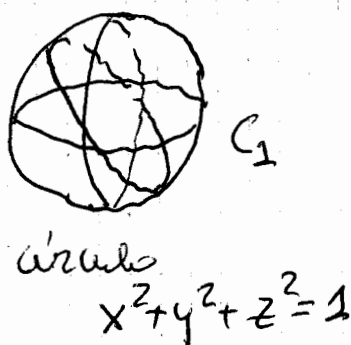 C₁
círculo
x²+y²+z²=1